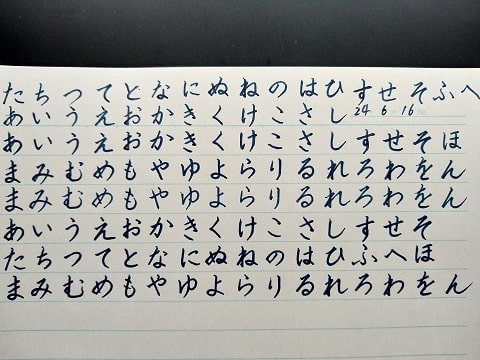 たちつてとなにぬねのはひすせそふへ
あいうえおかきくけこさし
24 6.16
あいうえおかきくけこさしすせそほ
まみむめもやゆよらりるれろわをん
まみむめもやゆよらりるれろわをん
あいうえおかきくけこさしすせそ
たちつてとなにぬねのはひふへほ
まみむめもやゆよらりるれろわをん